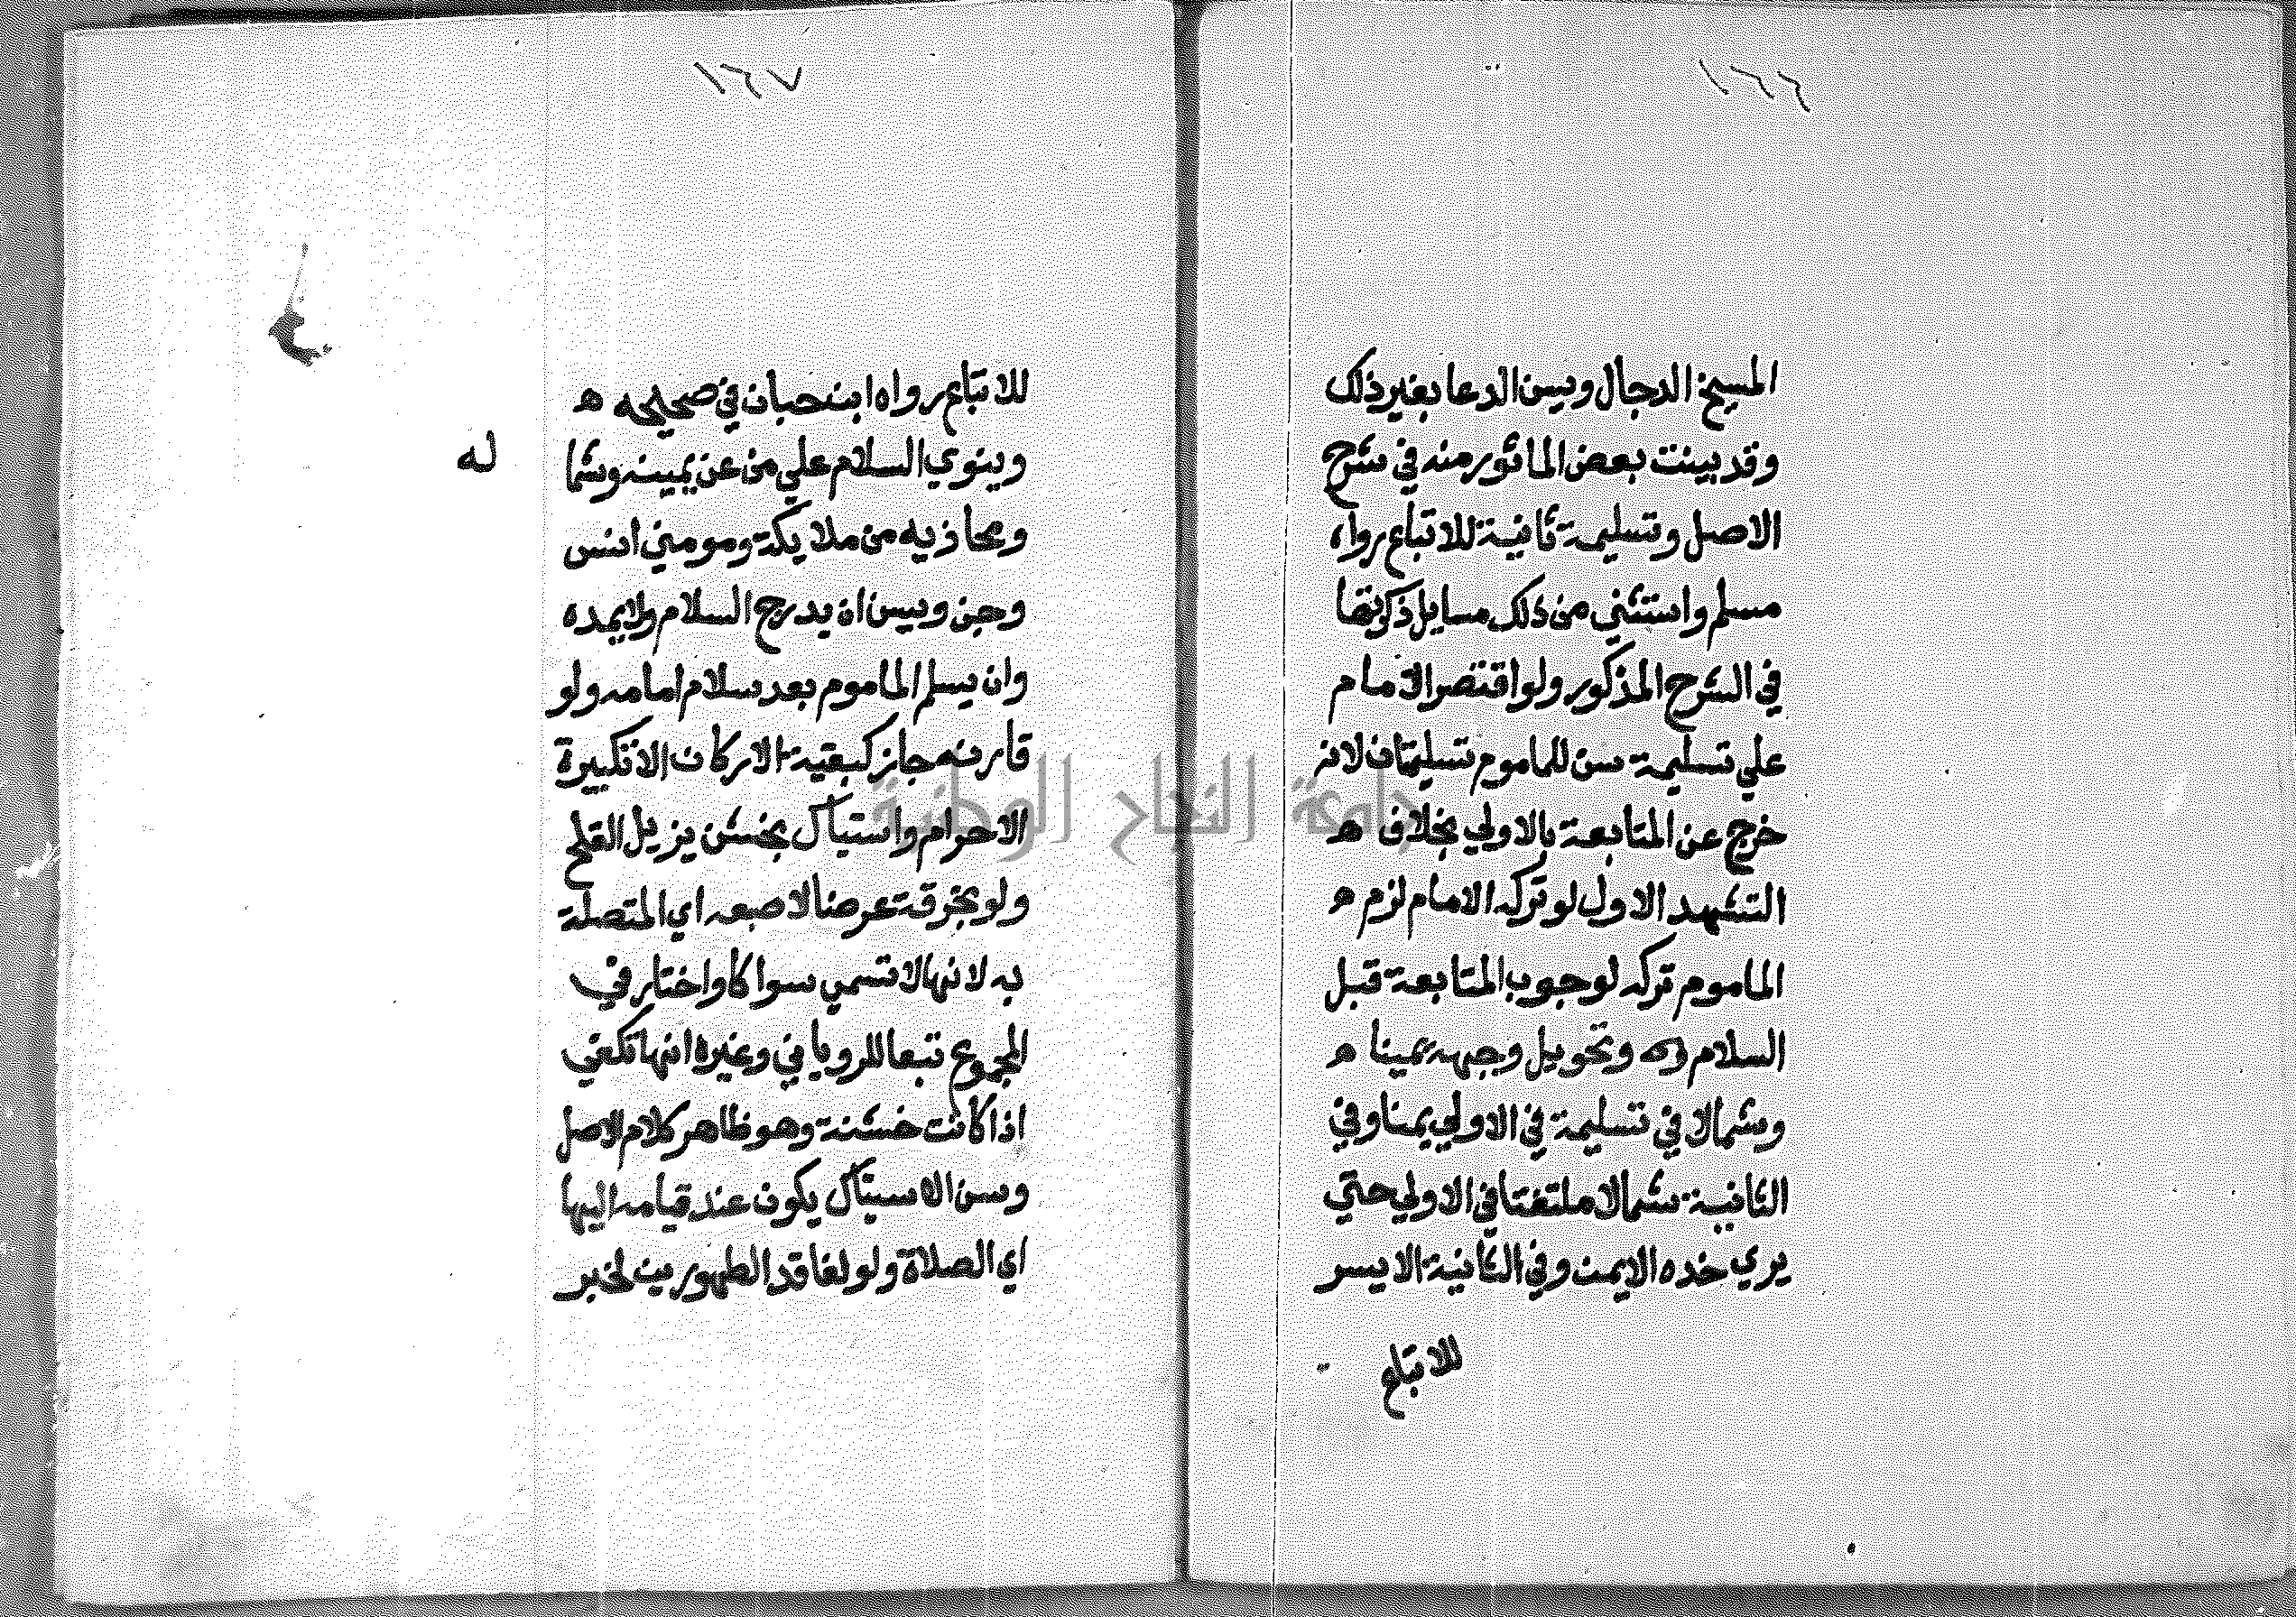 ١٦٦
المسيح الدجال ويسن الدعا بغير ذلك
وقد بينت بعض الماثور منه في شرح
الاصل وتسليمة ثانية للاتباع رواه
مسلم واستثني من ذلك مسايل ذكرتها
في الشرح المذكور ولو اقتصر الامام
علي تسليمة سن للماموم تسليمتان لانه
خرج عن المتابعة بالاولي بخلاف ه
التشهد الاول لو تركه الامام لزم ه
الماموم تركه لوجوب المتابعة قبل
السلام وتحويل وجهه يمينا ه
وشمالا في تسليمة في الاولي يمنا وفي
الثانية شمالا ملتفتا في الاولي حتي
يري خده الايمن وفي الثانية الايسر
للاتباع
١٦٧
للاتباع رواه ابن حبان في صحيحه ه
وينوي السلام علي من عن يمينه وشما له
ومحاذيه من ملايكة ومومني انس
وجن ويسن ان يدرج السلام ولا يمده
وان يسلم الماموم بعد سلام امامه ولو
قارنه جاز كبقية الاركان الا تكبيرة
الاحرام واستياك بخشن يزيل القلح
ولو بخرقة عرضا لا اصبعه اي المتصلة
به لانها لا تسمي سواكا واختار في
المجموع تبعا للروياني وغيره انها تكفي
اذا كانت خشنة وهو ظاهر كلام الاصل
وسن الاستياك يكون عند قيامه اليها
اي الصلاة ولو لفاقد الطهورين لخبر
جامعة النجاح الوطنية